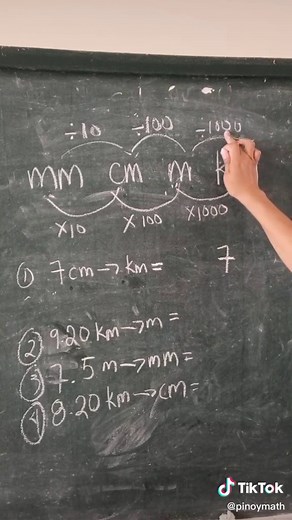 ÷10 ÷100 ÷1000
mm cm m k
×10 ×100 ×1000
① 7cm→km= 7
② 9.20 km→m=
③ 7.5 m→mm=
④ 8.20 km→cm=
TikTok
@pinoymath